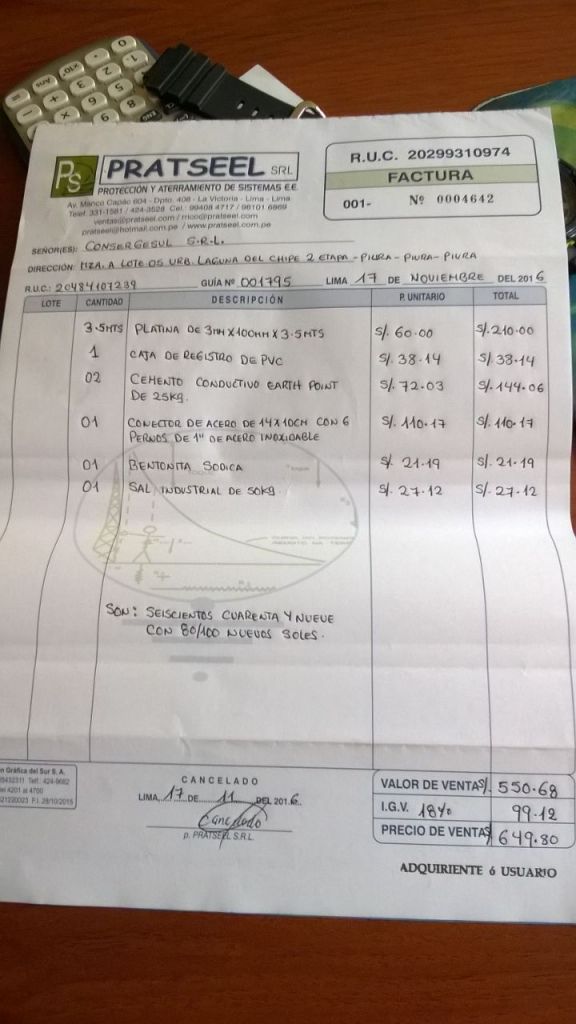 PS PRATSEEL SRL
PROTECCIÓN Y ATERRAMIENTO DE SISTEMAS E.E.
Av. Manco Capac 604 - Dpto. 408 - La Victoria - Lima - Lima
Telef. 331-1581 / 424-3528 Cel.: 99408 4717 / 96101 6869
ventas@pratseel.com / rrico@pratseel.com
pratseel@hotmail.com.pe / www.pratseel.com.pe
R.U.C. 20299310974
FACTURA
001- Nº 0004642
SEÑOR(ES): CONSERGESUL S.R.L.
DIRECCIÓN: MZA. A LOTE 05 URB. LAGUNA DEL CHIPE 2 ETAPA - PIURA - PIURA - PIURA
R.U.C.: 20484107239 GUÍA Nº 001795 LIMA 17 DE NOVIEMBRE DEL 2016
LOTE CANTIDAD DESCRIPCIÓN P. UNITARIO TOTAL
3.5MTS PLATINA DE 3MM X 100MM X 3.5MTS S/. 60.00 S/. 210.00
1 CAJA DE REGISTRO DE PVC S/. 38.14 S/. 38.14
02 CEMENTO CONDUCTIVO EARTH POINT S/. 72.03 S/. 144.06
DE 25Kg.
01 CONECTOR DE ACERO DE 14X10CM CON 6 S/. 110.17 S/. 110.17
PERNOS DE 1" DE ACERO INOXIDABLE
01 BENTONITA SODICA S/. 21.19 S/. 21.19
01 SAL INDUSTRIAL DE 50Kg S/. 27.12 S/. 27.12
SON: SEISCIENTOS CUARENTA Y NUEVE
CON 80/100 NUEVOS SOLES.
n Gráfica del Sur S. A.
Telf.: 424-9682
4201 al 4700
F.I. 28/10/2015
CANCELADO
LIMA, 17 DE 11 DEL 2016
Cancelado
p. PRATSEEL S.R.L.
VALOR DE VENTA S/. 550.68
I.G.V. 18% 99.12
PRECIO DE VENTA S/ 649.80
ADQUIRIENTE ó USUARIO